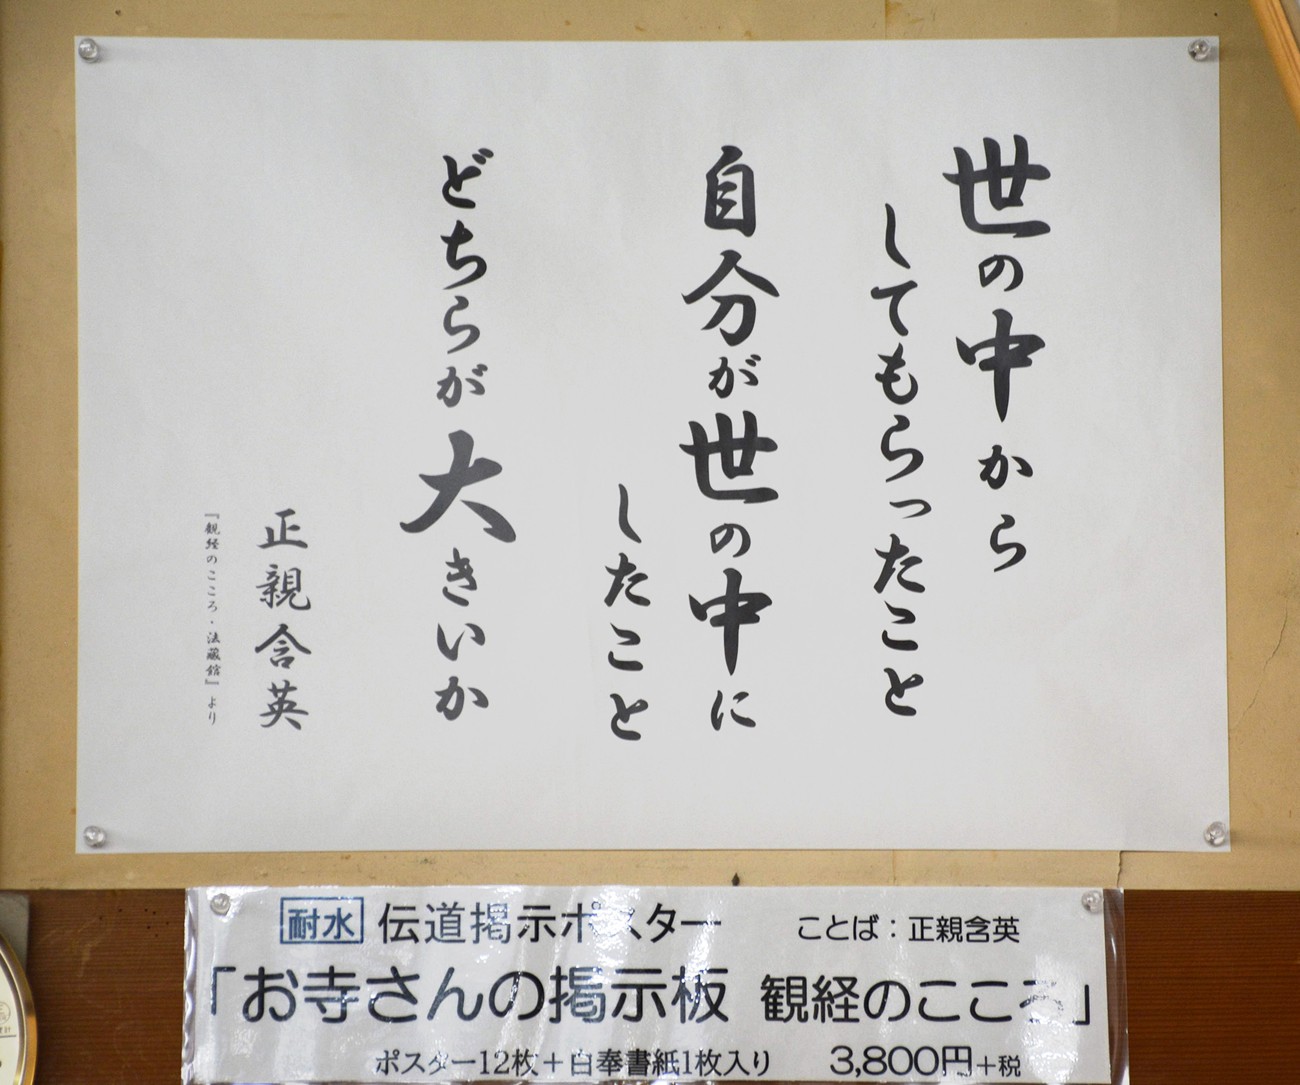 世の中から
してもらったこと
自分が世の中に
したこと
どちらが大きいか
正親含英
『観経のこころ・法蔵館』より
耐水 伝道掲示ポスター ことば：正親含英
「お寺さんの掲示板 観経のこころ」
ポスター12枚＋白奉書紙1枚入り 3,800円＋税